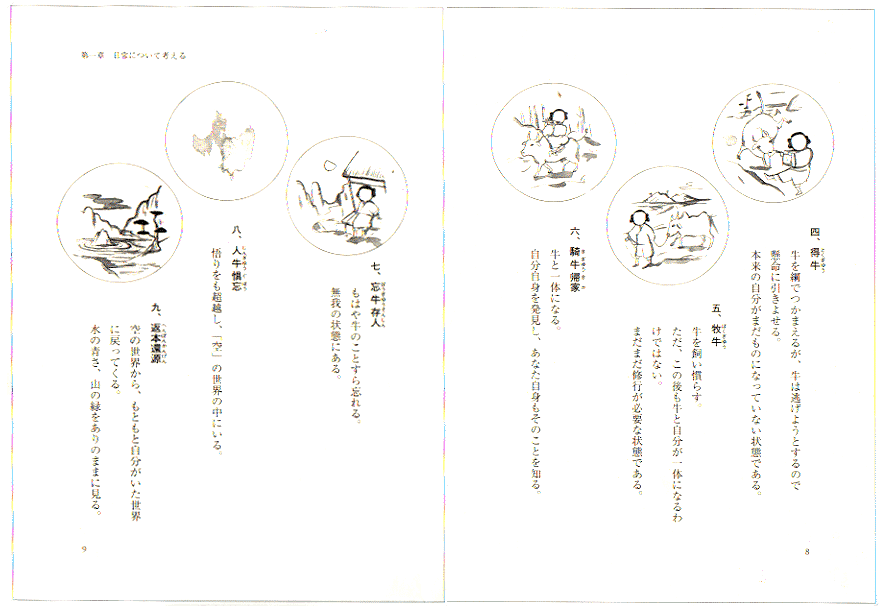 四、得牛
とくぎゅう
牛を綱でつかまえるが、牛は逃げようとするので
懸命に引きよせる。
本来の自分がまだものになっていない状態である。
五、牧牛
ぼくぎゅう
牛を飼い慣らす。
ただ、この後も牛と自分が一体になるわ
けではない。
まだまだ修行が必要な状態である。
六、騎牛帰家
きぎゅうきか
牛と一体になる。
自分自身を発見し、あなた自身もそのことを知る。
8
第一章 日常について考える
七、忘牛存人
ぼうぎゅうそんじん
もはや牛のことすら忘れる。
無我の状態にある。
八、人牛倶忘
じんぎゅうぐぼう
悟りをも超越し、「空」の世界の中にいる。
九、返本還源
へんぽんかんげん
空の世界から、もともと自分がいた世界
に戻ってくる。
水の青さ、山の緑をありのままに見る。
9